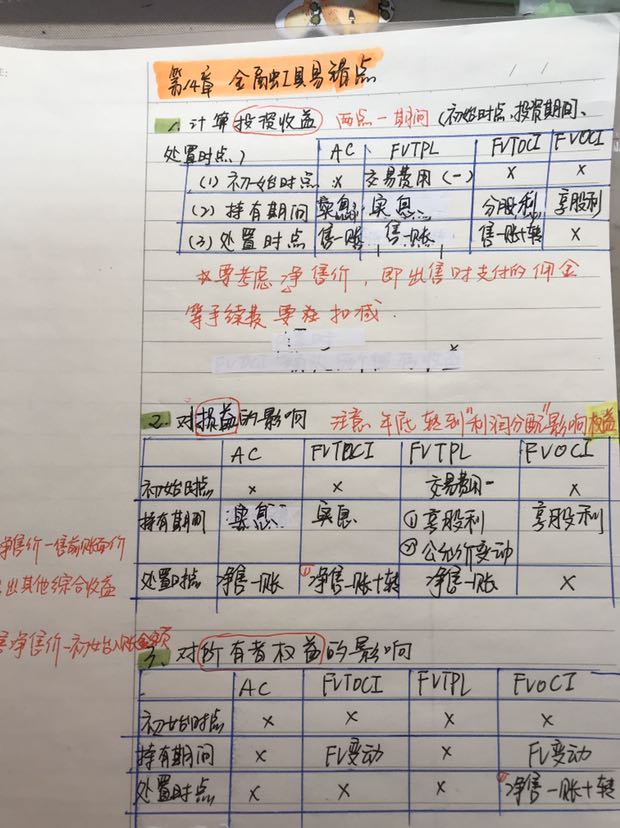 第14章 金融工具易错点
1. 计算投资收益 两点一期间(初始时点、投资期间、
处置时点) AC FVTPL FVTOCI FVOCI
(1) 初始时点 × 交易费用(-) × ×
(2) 持有期间 实息 实息 分股利 享股利
(3) 处置时点 售-账 售-账 售-账+转 ×
*要考虑净售价,即出售时支付的佣金
等手续费要在扣减.
×
2. 对损益的影响 注意 年底转到"利润分配"影响权益
AC FVTOCI FVTPL FVOCI
初始时点 × × 交易费用- ×
持有期间 实息 实息 ①享股利 享股利
②公允价变动
净售价-售前账面价
处置时点 净售-账 ①净售-账+转 净售-账 ×
出其他综合收益
净售价-初始入账金额
3. 对所有者权益的影响
AC FVTOCI FVTPL FVOCI
初始时点 × × × ×
持有期间 × FV变动 × FV变动
处置时点 × × × ①净售-账+转